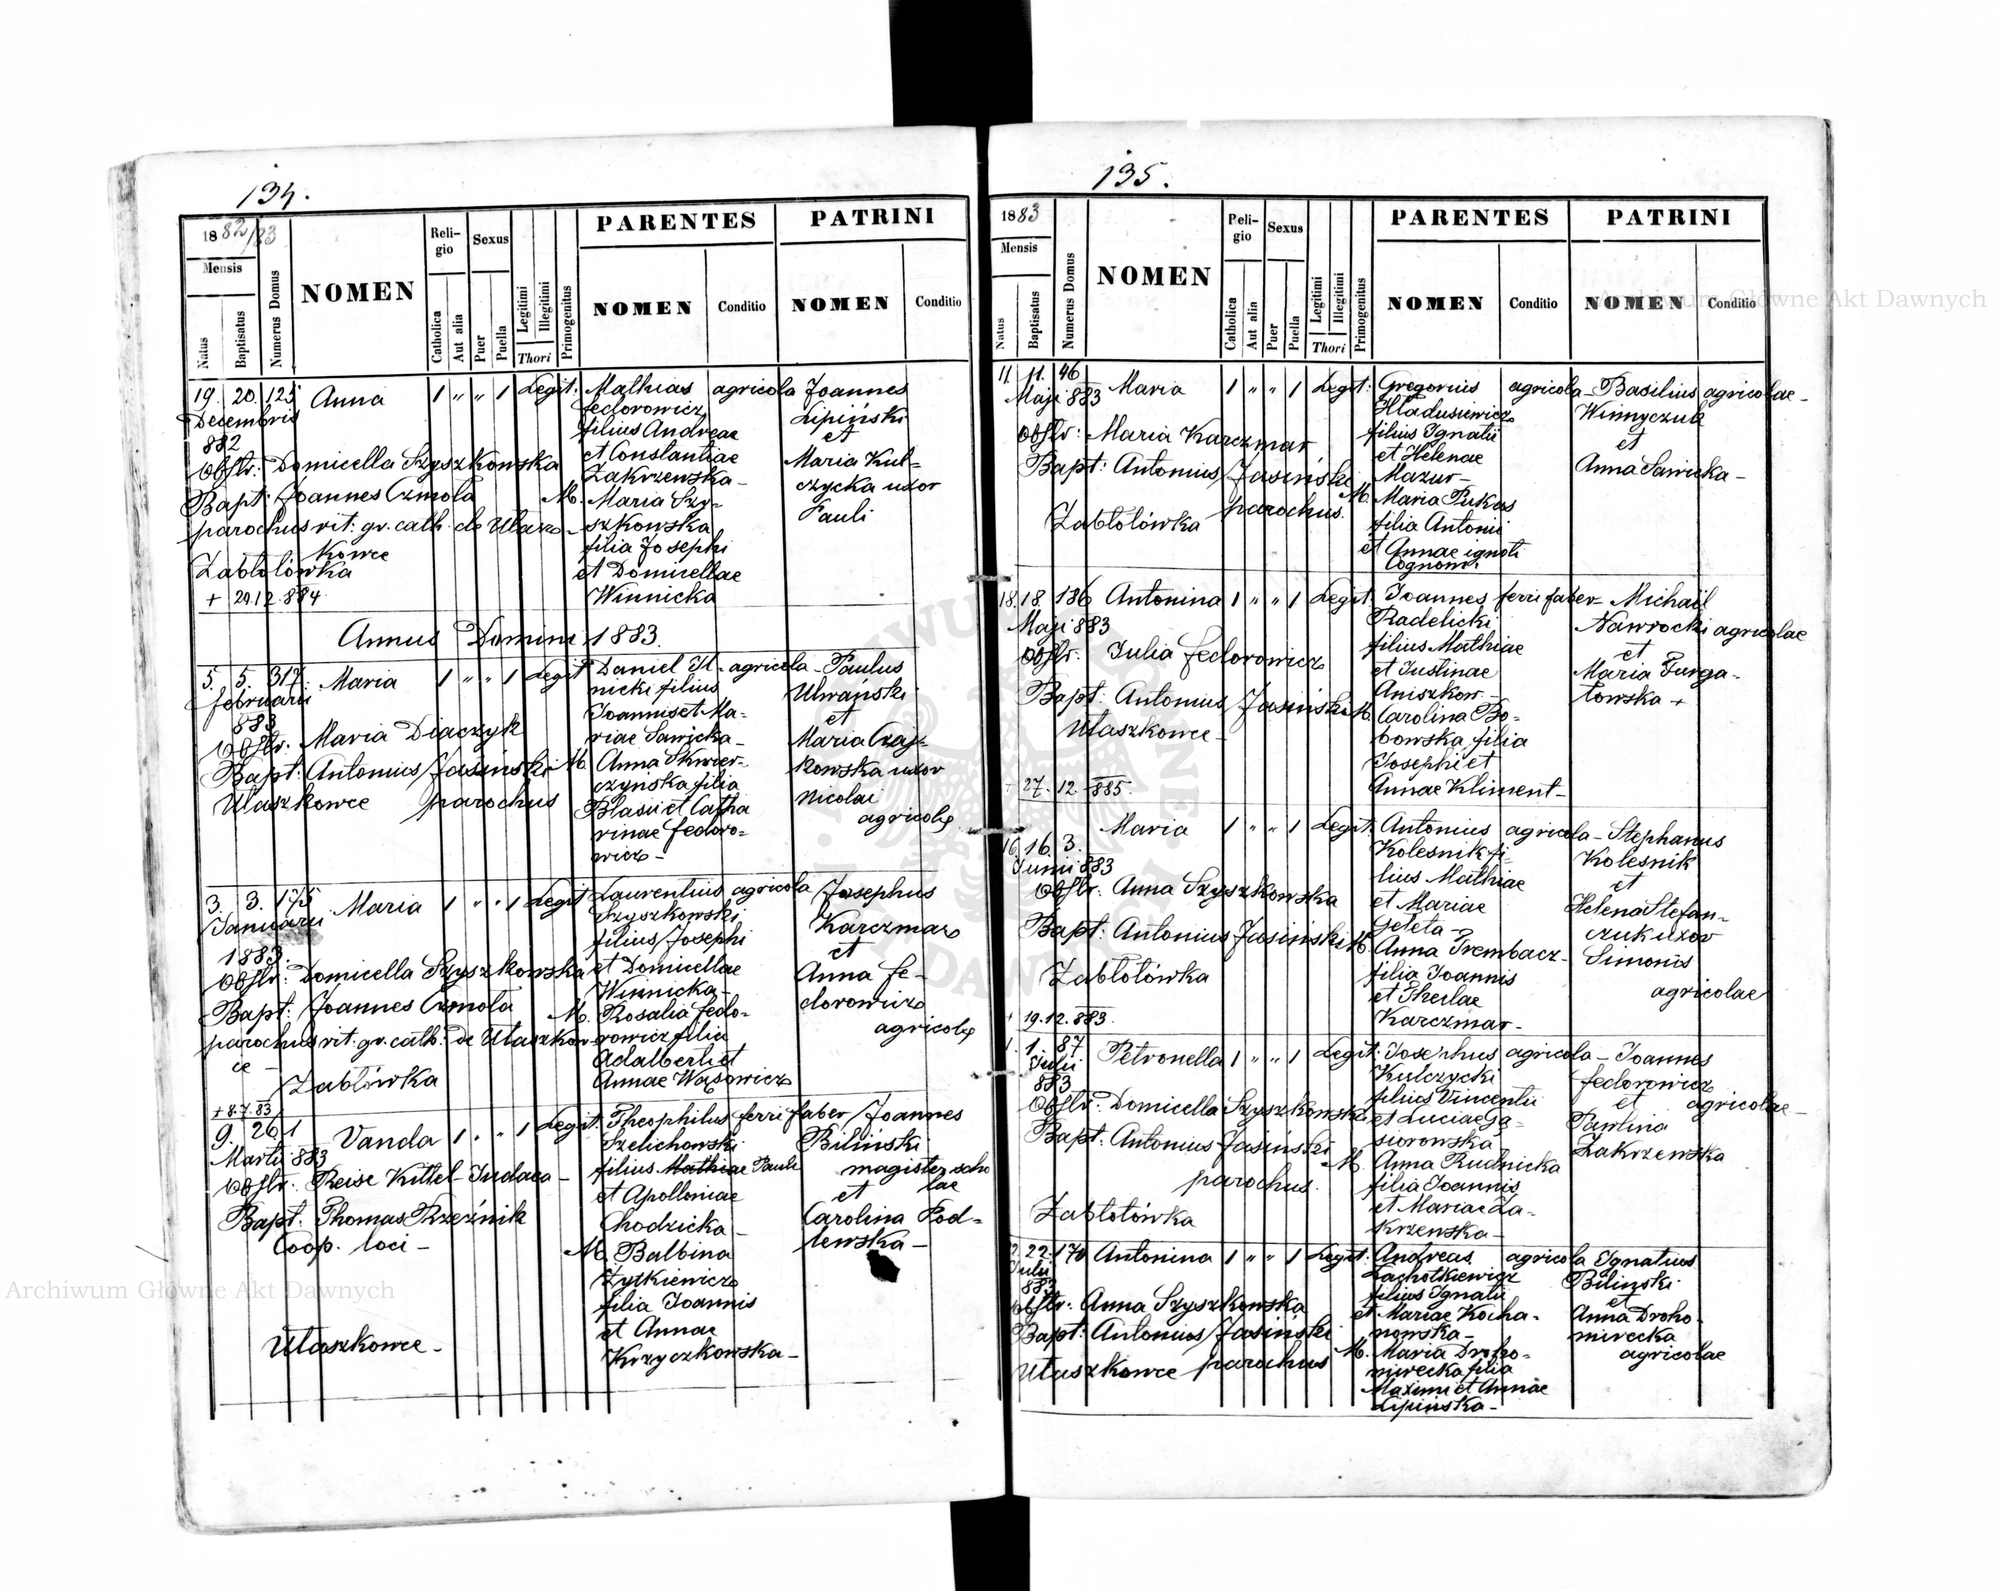 134.
1882/83
Mensis
Natus
Baptisatus
Numerus Domus
NOMEN
Reli-
gio
Catholica
Aut alia
Sexus
Puer
Puella
Legitimi
Illegitimi
Thori
Primogenitus
PARENTES
NOMEN
Conditio
PATRINI
NOMEN
Conditio
19. 20. 125 Anna 1 " " 1 Legit:
Decembris
882
Obstr: Domicella Szyszkowska
Bapt: Joannes Czmola
parochus rit: gr. cath. de Ułasz-
kowce
Zabłotówka
+ 29.12.884
Mathias agricola
Fedorowicz
filius Andreae
et Constantiae
Zakrzewska -
M. Maria Szy-
szkowska
filia Josephi
et Domicellae
Winnicka
Joannes
Lipiński
et
Maria Kul-
czycka uxor
Pauli
Annus Domini 1883.
5. 5. 317. Maria 1 " " 1 Legit
februarii
883
Obstr: Maria Diaczyk
Bapt: Antonius Jasiński
Ułaszkowce parochus
Daniel Il- agricola
nicki filius
Joannis et Ma-
riae Sawicka -
M. Anna Skwier-
czyńska filia
Blasii et Catha
rinae Fedoro-
wicz -
Paulus
Ulwański
et
Maria Czaj-
kowska uxor
Nicolai
agricolae
3. 3. 175 Maria 1 " " 1 Legit
Januarii
1883.
Obstr: Domicella Szyszkowska
Bapt: Joannes Czmola
parochus rit: gr. cath: de Ułaszkow-
ce -
Zabłówka
+ 8.7.83
Laurentius agricola
Szyszkowski
filius Josephi
et Domicellae
Winnicka -
M. Rosalia Fedo-
rowicz filia
Adalberti et
Annae Wąsowicz
Josephus
Karczmar
et
Anna Fe-
dorowicz
agricolae
9. 26 1 Vanda 1 " " 1 Legit:
Martii 883
Obstr: Reise Kittel Judaea -
Bapt: Thomas Rzeźnik
Coop. loci -
Ułaszkowce -
Theophilus ferri faber
Szelichowski
filius Mathiae Pauli
et Apolloniae
Chodzicka -
M. Balbina
Żytkiewicz
filia Joannis
et Annae
Krzyczkowska -
Joannes
Biliński
magister scho
lae
et
Carolina Pod-
lewska -
135.
1883
Mensis
Natus
Baptisatus
Numerus Domus
NOMEN
Peli-
gio
Catholica
Aut alia
Sexus
Puer
Puella
Legitimi
Illegitimi
Thori
Primogenitus
PARENTES
NOMEN
Conditio
PATRINI
NOMEN
Conditio
11. 11. 46 Maria 1 " " 1 Legit:
Maji 883
Obstr: Maria Karczmar
Bapt: Antonius Jasiński
parochus.
Zabłotówka
Gregorius agricola -
Hładusiewicz
filius Ignatii
et Helenae
Mazur -
M. Maria Pukas
filia Antonii
et Annae ignoti
Cognom:
Basilius agricolae -
Winnyczuk
et
Anna Sawicka -
18. 18. 186 Antonina 1 " " 1 Legit:
Maji 883
Obstr: Julia Fedorowicz
Bapt: Antonius Jasiński
Ułaszkowce -
+ 27. 12. 885.
Joannes ferri faber -
Radelicki
filius Mathiae
et Justinae
Aniszkow -
M. Carolina Bo-
bowska filia
Josephi et
Annae Kliment -
Michaël
Nawrocki agricolae
et
Maria Furga-
łowska +
Maria 1 " " 1 Legit:
16. 16. 3.
Junii 883
Obstr: Anna Szyszkowska
Bapt: Antonius Jasiński
Zabłotówka
+ 19.12.883.
Antonius agricola -
Kolesnik fi-
lius Mathiae
et Mariae
Geleta -
M. Anna Trembacz -
filia Joannis
et Theclae
Karczmar -
Stephanus
Kolesnik
et
Helena Stefan-
czuk uxor
Simonis
agricolae
1. 1. 87 Petronella 1 " " 1 Legit:
Julii
883
Obstr: Domicella Szyszkowska
Bapt: Antonius Jasiński
parochus.
Zabłotówka
Josephus agricola -
Kulczycki
filius Vincentii
et Luciae Gą-
siorowska
M. Anna Rudnicka
filia Joannis
et Mariae Za-
krzewska -
Joannes
Fedorowicz
et agricolae -
Pawlina
Zakrzewska
22. 22. 170 Antonina 1 " " 1 Legit:
Julii
883
Obstr: Anna Szyszkowska
Bapt: Antonius Jasiński
Ułaszkowce parochus
Andreas agricola
Lachotkiewicz
filius Ignatii
et Mariae Kocha-
nowska -
M. Maria Droho-
mirecka filia
Maximi et Annae
Lipińska -
Ignatius
Biliński
et
Anna Droho-
mirecka
agricolae
Archiwum Główne Akt Dawnych
Archiwum Główne Akt Dawnych